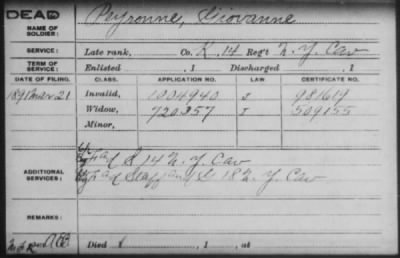 DEAD
NAME OF SOLDIER: Peyronne, Giovanne
SERVICE: Late rank, Co. K, 14 Reg't N. Y. Cav
TERM OF SERVICE: Enlisted , 1 Discharged , 1
DATE OF FILING. CLASS. APPLICATION NO. LAW. CERTIFICATE NO.
1891 Mar 21 Invalid, 1004940 J 981614
Widow, 720357 J 509155
Minor,
ADDITIONAL SERVICES: 14 N. Y. Cav
18 N. Y. Cav
REMARKS:
Died , 1 , at